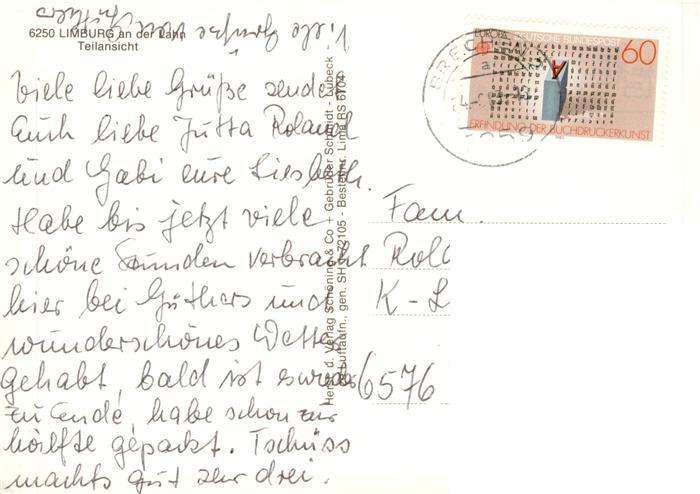 6250 LIMBURG an der Lahn
Teilansicht
Viele Grüße von
Viele liebe Grüße sendet
Euch liebe Jutta Roland
und Gabi eure Liesbeth.
Habe bis jetzt viele
schöne Stunden verbracht
hier bei Güthers und
wunderschönes Wetter
gehabt, bald ist es wieder
zu Ende, habe schon zur
hälfte gepackt. Tschüss
machts gut ihr drei.
Herst. u. Verlag Schöning & Co + Gebrüder Schmidt - Lübeck
Luftaufn., gen. SH 72105 - Bestellnr. Lima RS 6704
EUROPA DEUTSCHE BUNDESPOST
60
A
ERFINDUNG DER BUCHDRUCKERKUNST
Fam.
Rol
K-L
6576